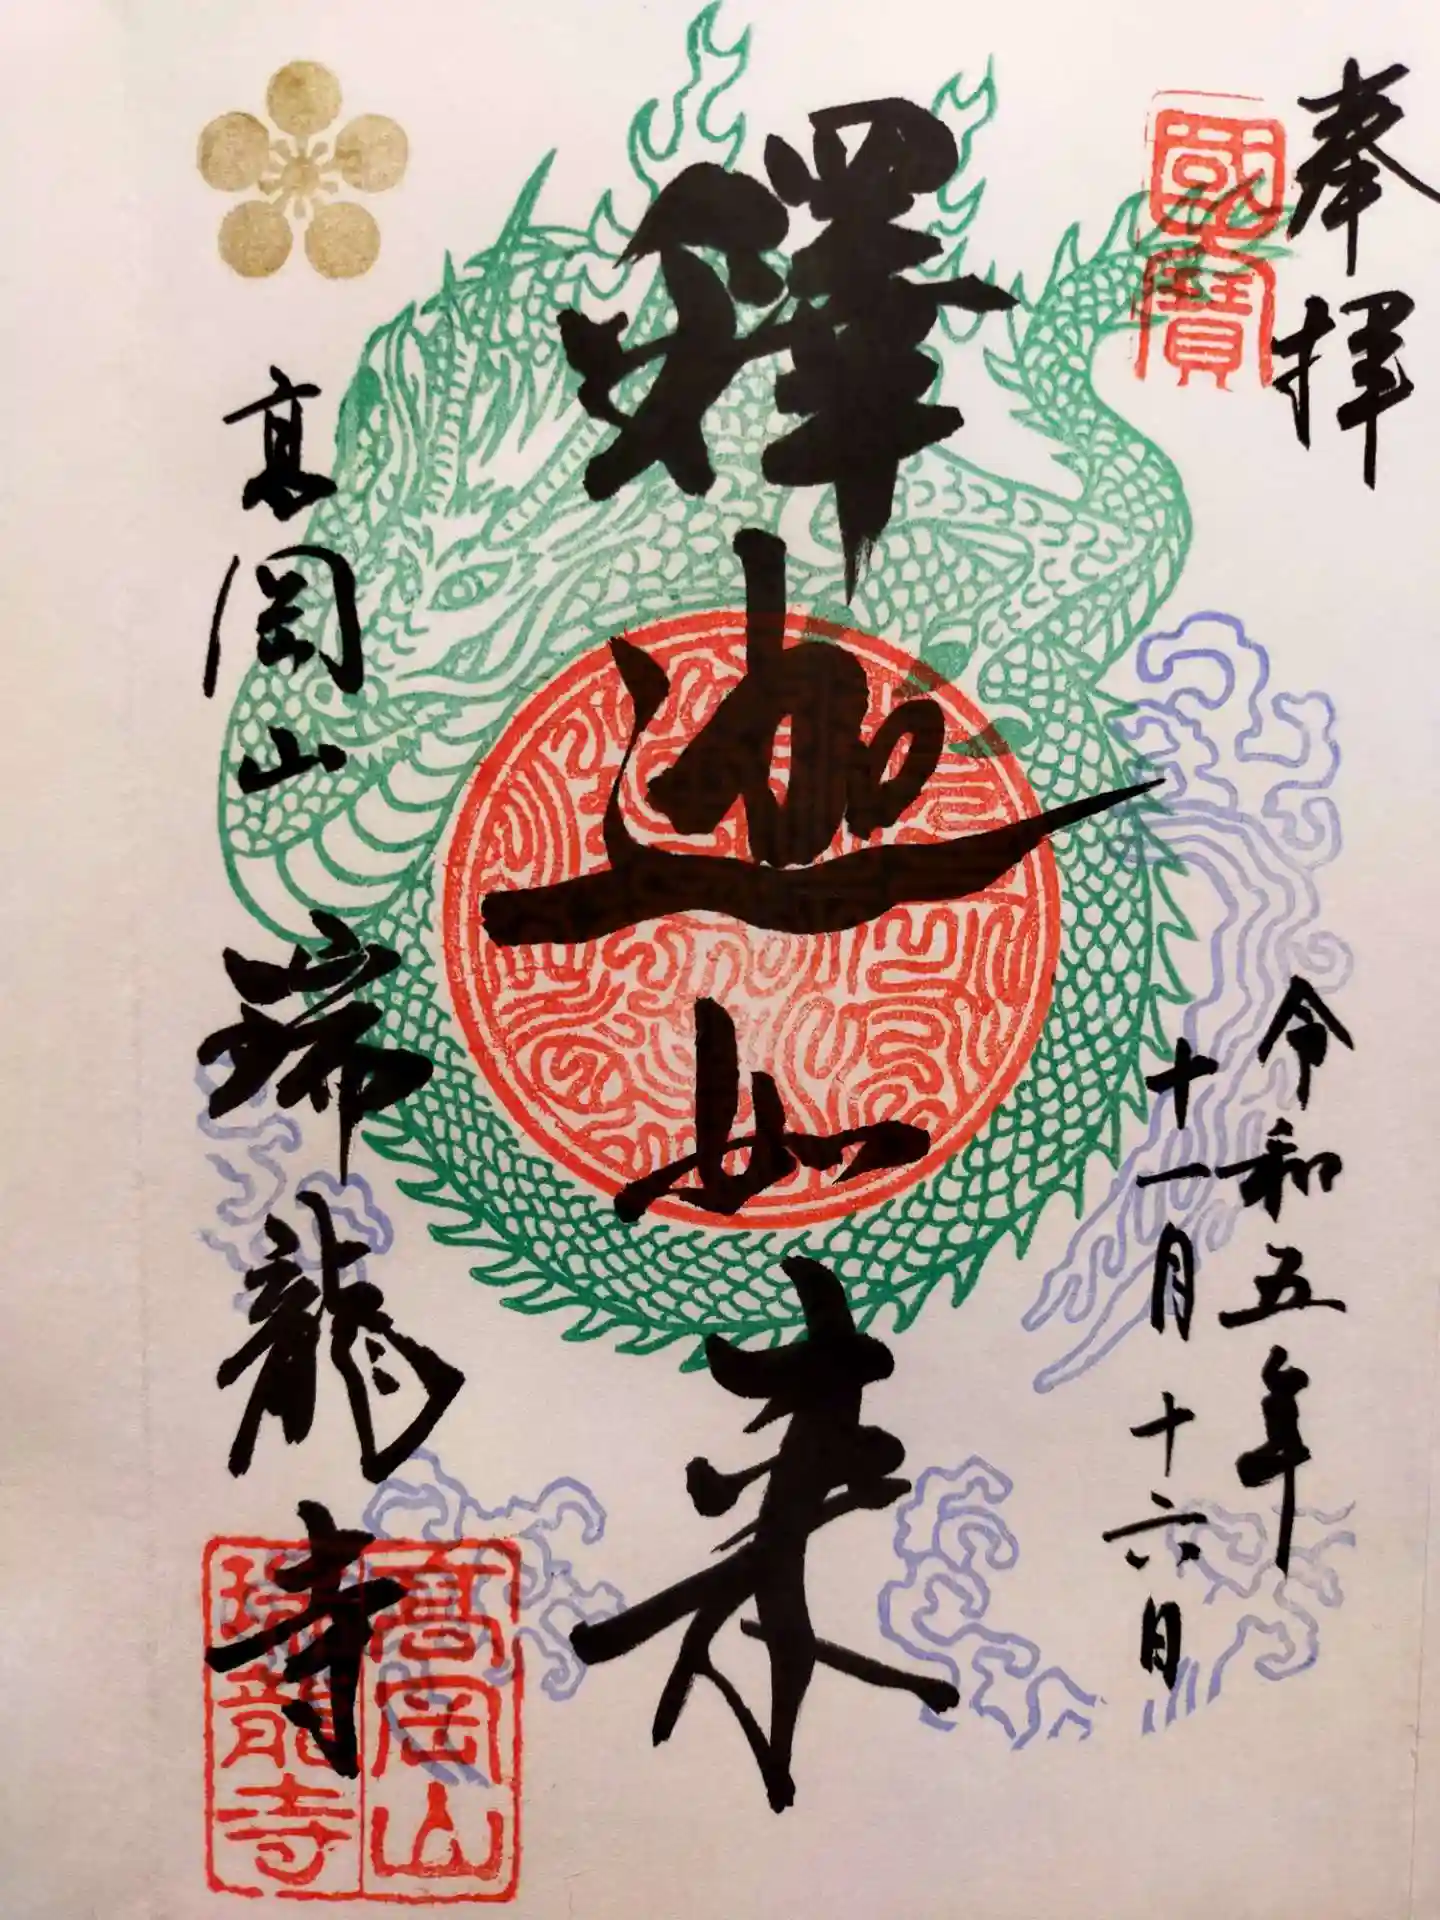 奉拝
國寳
令和五年
十一月十六日
釋迦如来
高岡山
瑞龍寺
高岡山
瑞龍寺